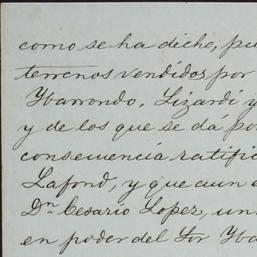 como se ha dicho, pu
terrenos vendidos por
Ybarrondo, Lizardi y
y de los que se dá po
consecuencia ratific
Lafond, y que aun e
Dn. Cesario Lopez, un
en poder del Sor Yba